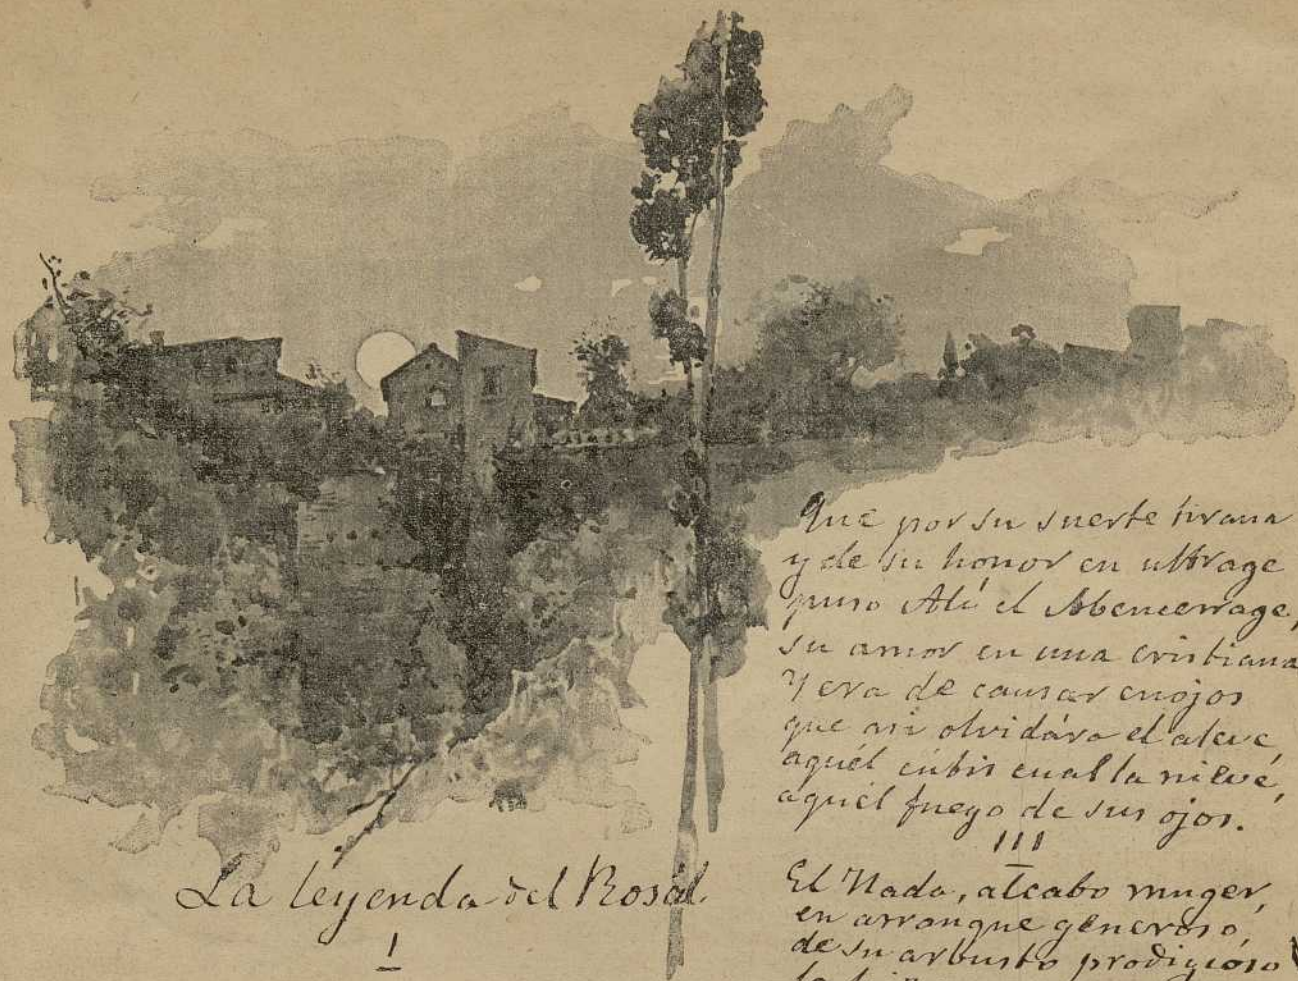 La leyenda del Rosal.
I
Que por su suerte tirana
y de su honor en ultrage
puso Alí el Abencerrage,
su amor en una cristiana
Y era de causar enojos
que asi olvidára el aleve,
aquél cútis cual la nieve,
aquél fuego de sus ojos.
III
El Hada, al cabo muger,
en arranque generoso,
de su arbusto prodigioso